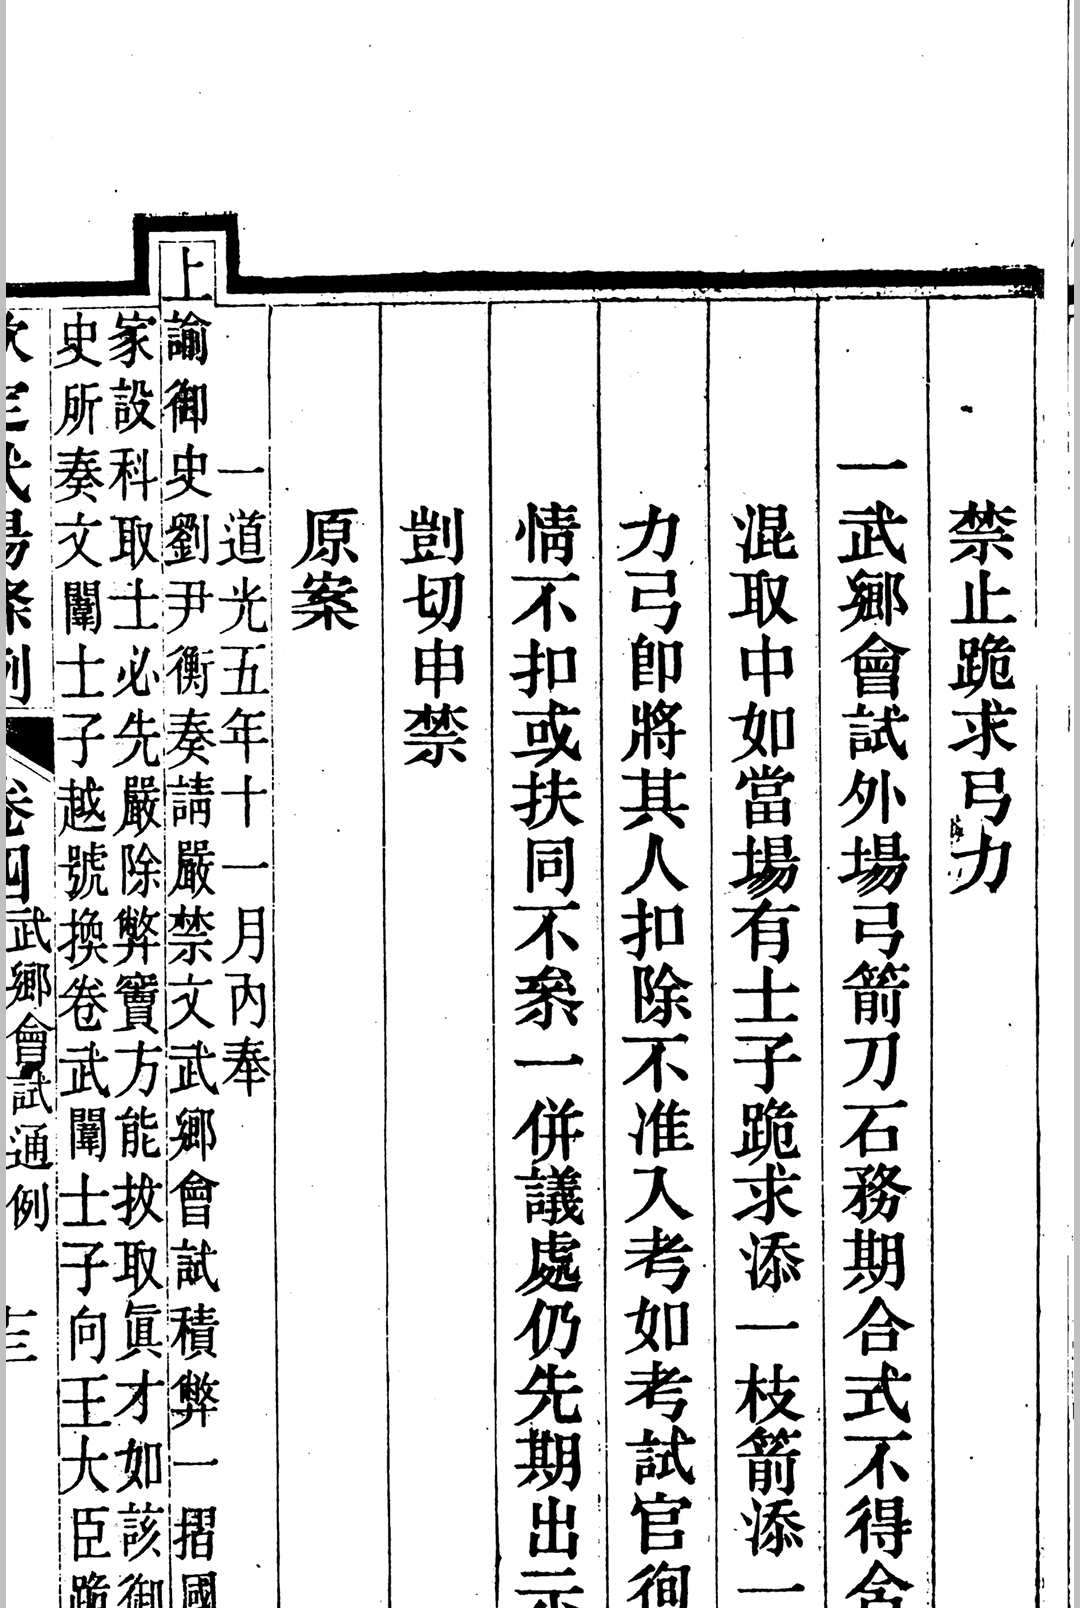 禁止跪求弓力
一武鄉會試外場弓箭刀石務期合式不得含
混取中如當場有士子跪求添一枝箭添一
力弓卽將其人扣除不准入考如考試官徇
情不扣或扶同不叅一併議處仍先期出示
剴切申禁
原案
一道光五年十一月內奉
上諭御史劉尹衡奏請嚴禁文武鄉會試積弊一摺國
家設科取士必先嚴除弊竇方能拔取眞才如該御
史所奏文闈士子越號換卷武闈士子向王大臣跪
欽定武場條例 卷四武鄉會試通例 十三